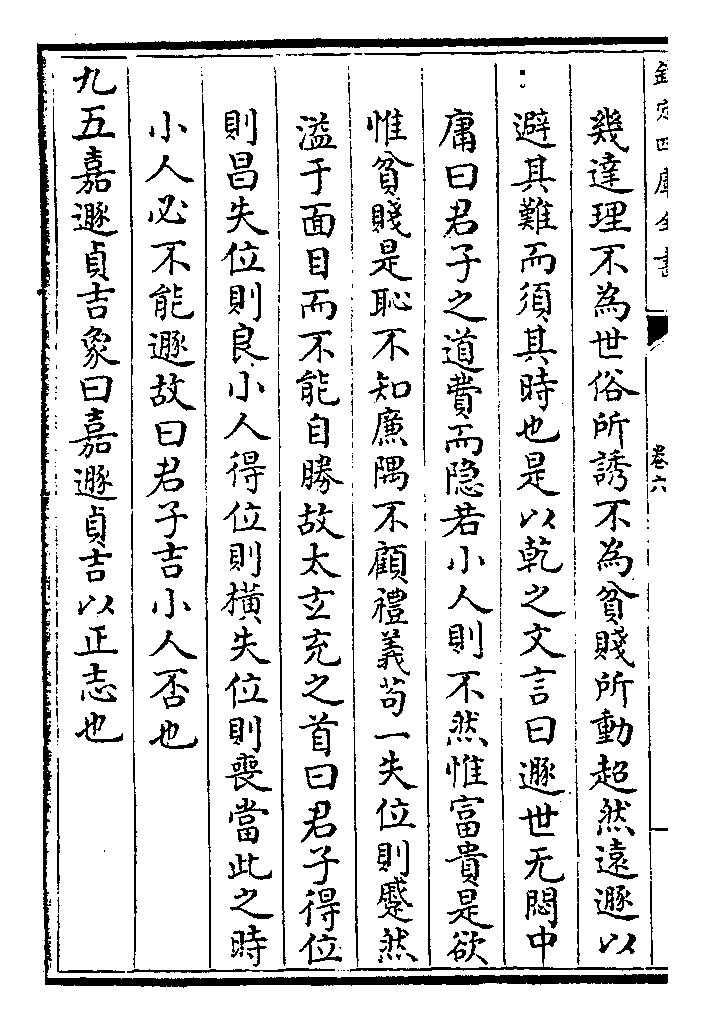 欽定四庫全書
卷六
幾達理不為世俗所誘不為貧賤所動超然遠遯以
避其難而須其時也是以乾之文言曰遯世无悶中
庸曰君子之道費而隱若小人則不然惟富貴是欲
惟貧賤是恥不知廉隅不顧禮義苟一失位則蹙然
溢于面目而不能自勝故太玄充之首曰君子得位
則昌失位則良小人得位則橫失位則喪當此之時
小人必不能遯故曰君子吉小人否也
九五嘉遯貞吉象曰嘉遯貞吉以正志也